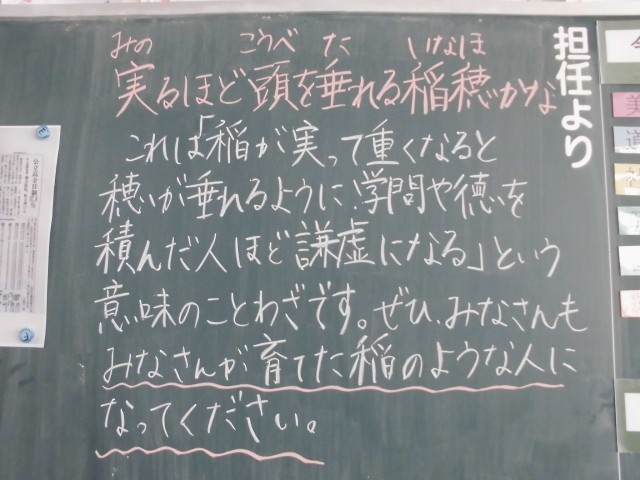 担任より
みの こうべ た いなほ
実るほど頭を垂れる稲穂かな
これは「稲が実って重くなると
穂が垂れるように、学問や徳を
積んだ人ほど謙虚になる」という
意味のことわざです。ぜひ、みなさんも
みなさんが育てた稲のような人に
なってください。